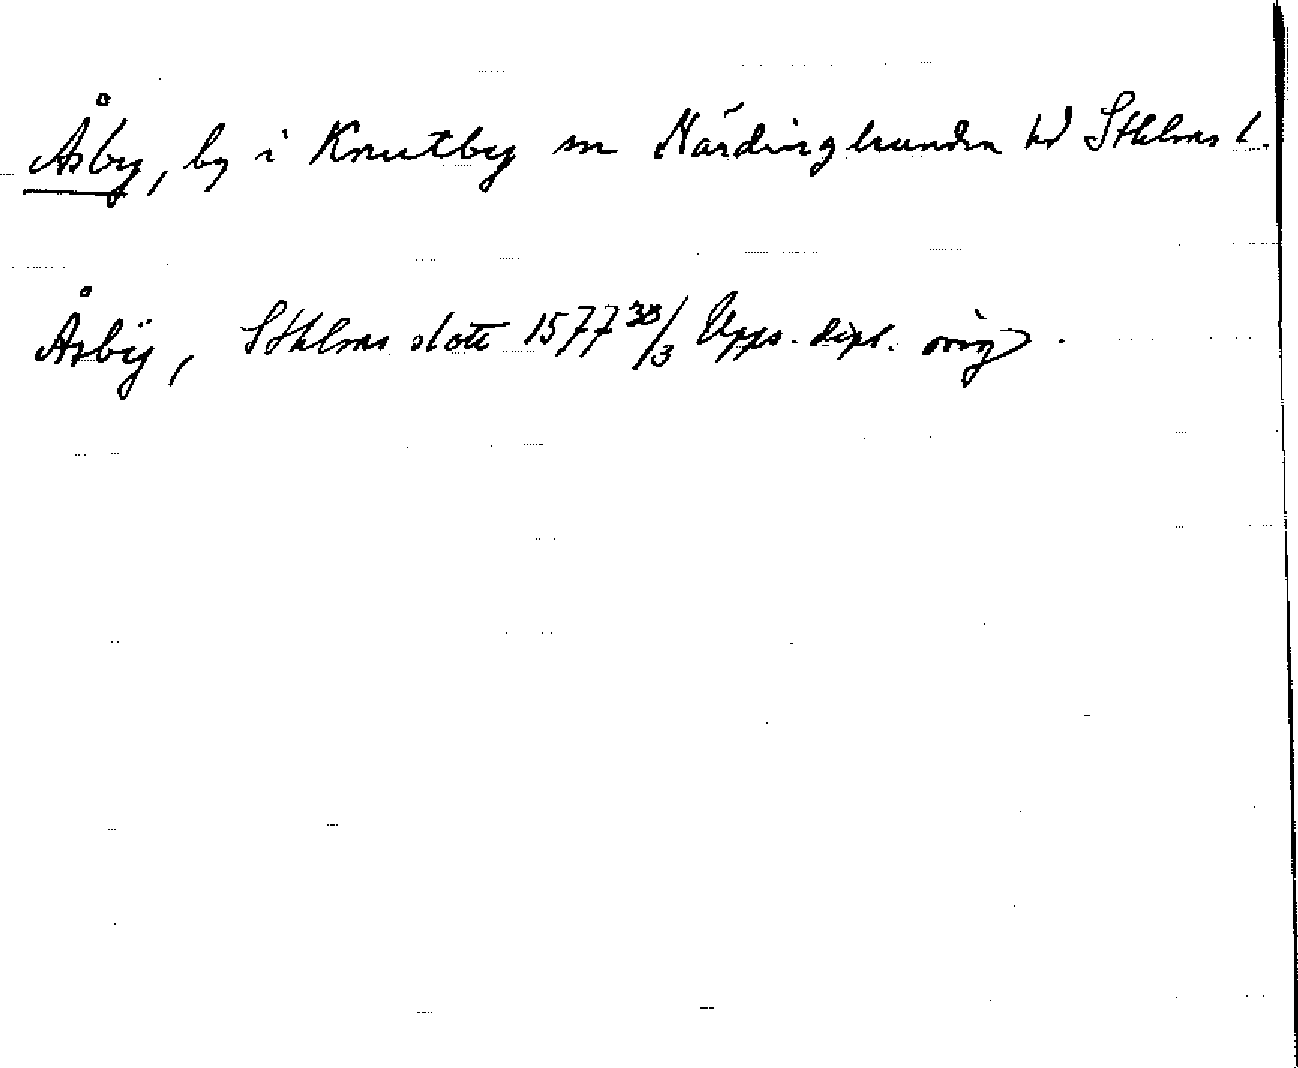 Åsby, by i Knutby sn Närdinghundra hd Sthlms l.
Åsbÿ, Sthlms slott 1577 30/3 Upps. dipl. orig.